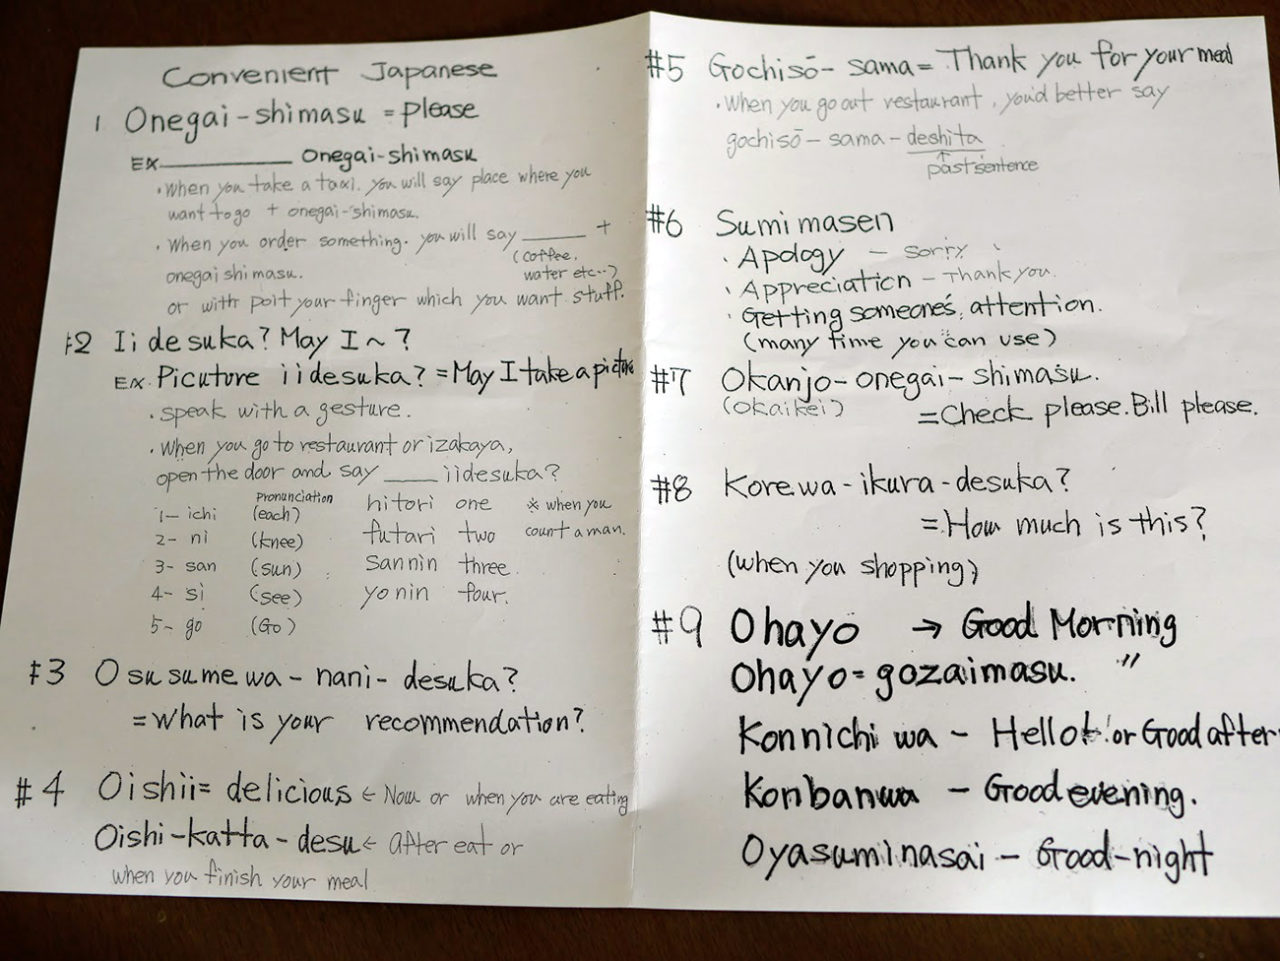 Convenient Japanese
1 Onegai-shimasu = please
Ex. ________ Onegai-shimasu
・When you take a taxi. you will say place where you
want to go + onegai-shimasu.
・When you order something. you will say ____ +
(coffee,
onegai shimasu.
water etc...)
or with poit your finger which you want stuff.
#2 Ii desuka? May I ~ ?
Ex. Picuture iidesuka? = May I take a picture
・speak with a gesture.
・When you go to restaurant or izakaya,
open the door and say ____ iidesuka?
Pronunciation
1- ichi (each) hitori one ※ when you
2- ni (knee) futari two count a man.
3- san (sun) sannin three
4- si (see) yonin four.
5- go (Go)
#3 Osusume wa - nani - desuka?
= What is your recommendation?
#4 Oishii = delicious ← Now or when you are eating
Oishi-katta-desu ← after eat or
when you finish your meal
#5 Gochisō-sama = Thank you for your meal
・When you go out restaurant, you'd better say
gochisō-sama-deshita
↑
past sentence
#6 Sumimasen
・Apology - sorry
・Appreciation - Thank you.
・Getting someone's, attention.
(many time you can use)
#7 Okanjo-onegai-shimasu.
(okaikei) = Check please. Bill please.
#8 Kore wa-ikura-desuka?
= How much is this?
(when you shopping)
#9 Ohayo → Good Morning
Ohayo-gozaimasu. 〃
Konnichi wa - Hello! or Good after
Konbanwa - Good evening.
Oyasuminasai - Good-night